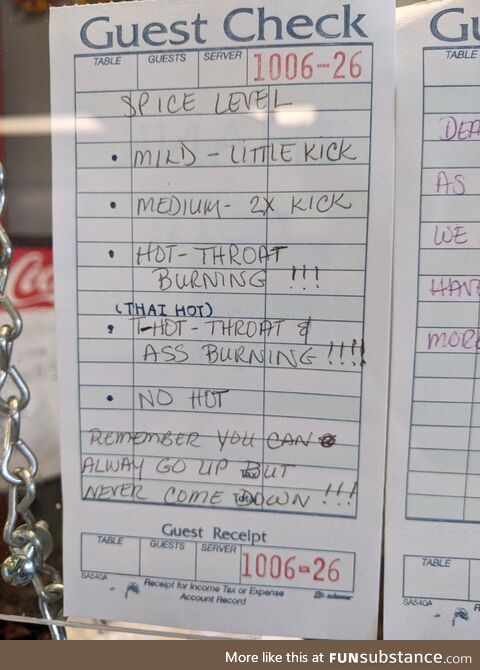 Guest Check
TABLE GUESTS SERVER 1006-26
SPICE LEVEL
• MILD - LITTLE KICK
• MEDIUM - 2X KICK
• HOT - THROAT
BURNING !!!
(THAI HOT)
• T-HOT - THROAT &
ASS BURNING !!!!
• NO HOT
REMEMBER YOU CAN
ALWAY GO UP BUT
Tax
NEVER COME DOWN !!!
Total
Guest Receipt
TABLE GUESTS SERVER 1006-26
SA540A
Receipt for Income Tax or Expense
Account Record
Gu
TABLE
DEA
AS
WE
HAV
MOR
TABLE
SA540A
More like this at FUNsubstance.com